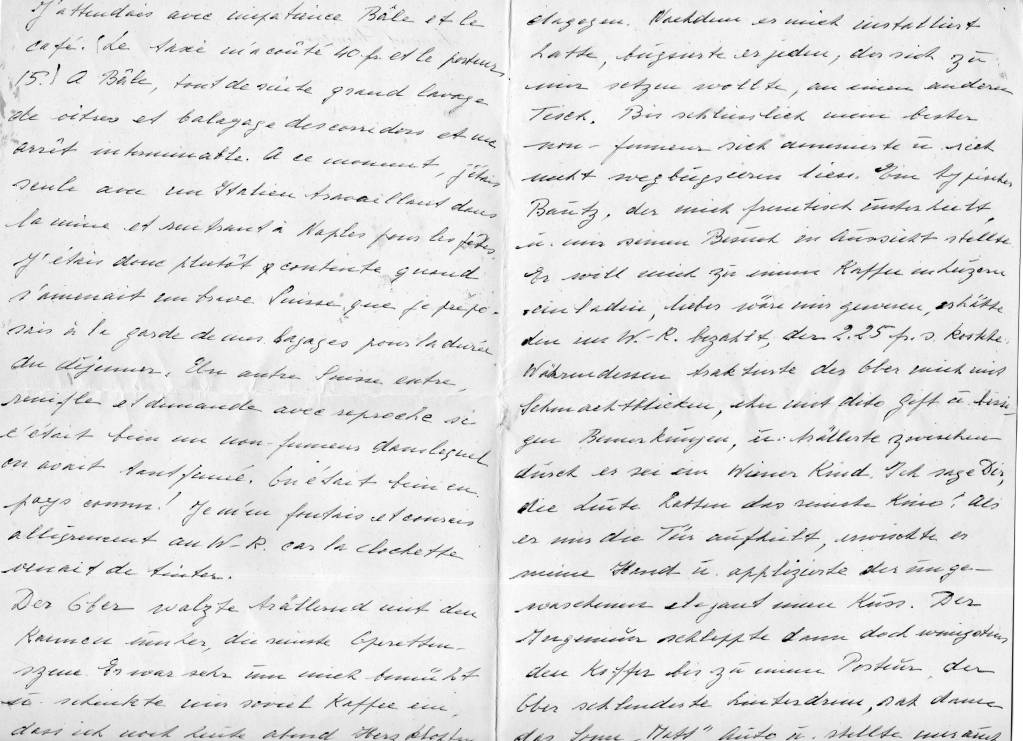 J'attendais avec impatience Bâle et le
café! Le taxi m'a coûté 40 fr. et le porteur
15! A Bâle, tout de suite grand lavage
de vitres et balayage des corridors et un
arrêt interminable. A ce moment, j'étais
seule avec un Italien travaillant dans
la mine et rentrant à Naples pour les fêtes.
J'étais donc plutôt contente quand
s'amenait un brave Suisse que je prépo-
sais à la garde de mes bagages pour la durée
du déjeuner. Un autre Suisse entre,
renifle et demande avec reproche si
c'était bien un non-fumeur dans lequel
on avait tant fumé. On était bien en
pays connu! Je m'en foutais et courais
allègrement au W-R. car la clochette
venait de tinter.
Der Ober walzte trällernd mit den
Kannen umher, die reinste Operetten-
szene. Er war sehr um mich bemüht
u. schenkte mir soviel Kaffee ein,
dass ich noch heute abend Herzklopfen
dagegen. Nachdem er mich installiert
hatte, bugsierte er jeden, der sich zu
mir setzen wollte, an einen anderen
Tisch. Bis schliesslich mein bester
non-fumeur sich amenierte u. sich
nicht wegbugsieren liess. Ein typischer
der mich frenetisch unterhielt,
u. mir seinen Besuch in Aussicht stellte.
Er will mich zu einem Kaffee in Luzern
einladen, lieber wäre mir gewesen, er hätte
den im W.-R. bezahlt, der 2.25 fr. s. kostete.
Währenddessen traktierte der Ober mich mit
Schmachtblicken, ihn mit dito Gift u. bissi-
gen Bemerkungen, u. trällerte zwischen
durch er sei ein Wiener Kind. Ich sage Dir,
die Leute hatten das reinste Kino! Als
er mir die Tür aufhielt, erwischte er
meine Hand u. applizierte der unge-
waschenen elegant einen Kuss. Der
schleppte dann doch wenigstens
den Koffer bis zu einem Porteur, der
Ober schlenderte hinterdrein, sah dann
das Auto u. stellte